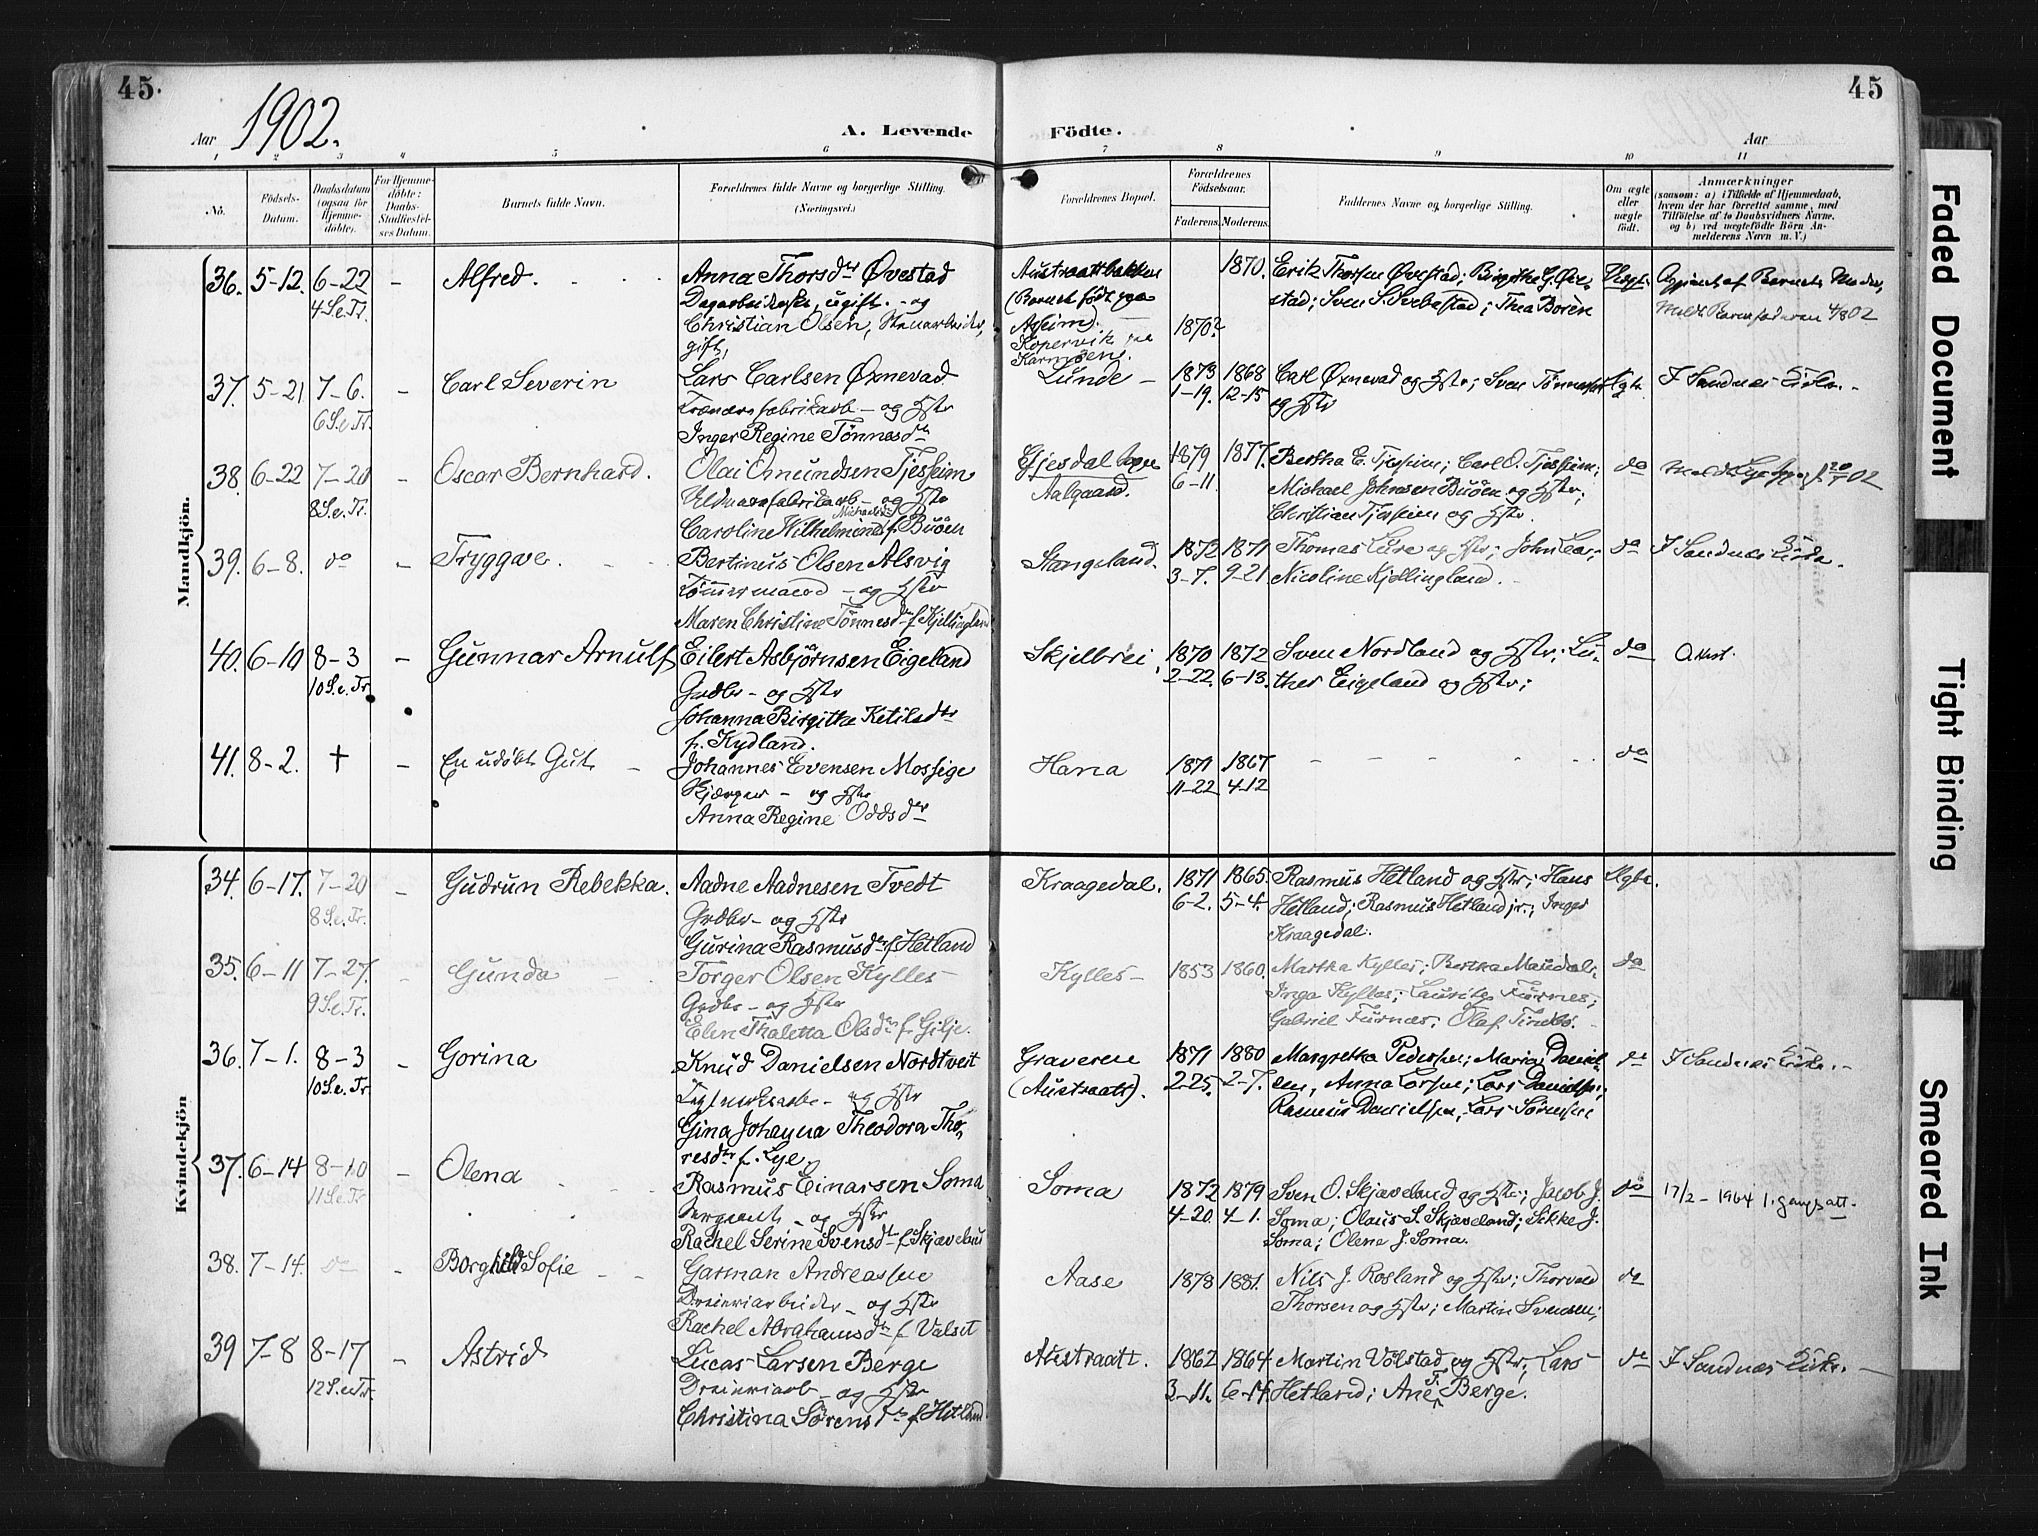 45.
45
Aar 1902.
A. Levende Födte.
Aar
1 2 3 4 5 6 7 8 9 10 11
No.
Födsels-Datum.
Daabsdatum (ogsaa for Hjemme-döbte).
For Hjemme-döbte: Daabs-Stadfæstelses Datum.
Barnets fulde Navn.
Forældrenes fulde Navne og borgerlige Stilling. (Næringsvei.)
Forældrenes Bopæl.
Forældrenes Födselsaar.
Faderens. Moderens.
Faddernes Navne og borgerlige Stilling.
Om ægte eller uægte født.
Anmærkninger
(saasom: a) i Tilfælde af Hjemmedaab,
hvem der har forrettet samme, med
Tilföielse af to Daabsvidners Navne.
og b) ved uægtefödte Börn An-
melderens Navn m. V.)
Mandkjön.
36. 5-12. 6-22 – Alfred. Anna Thorsdr Øvestad 1870. Erik Thorsen Øvestad; Birgithe G. Øve- Uægte.
4 S.e.Tr. ugift. – og (Barnet født paa stad; Sven S. Svebestad; Thea Boren
Christian Olsen, Stenarbeider, Asheim). 1870?
gift, Kopervik paa
Karmøen.
37. 5-21 7-6. – Carl Severin Lars Carlsen Øxnevad Lunde – 1873 1868 Carl Øxnevad og Hstr; Sven Tønnesen Ægte. I Sandnæs Kirke. –
6 S.e.Tr. og Hstr 1-19. 12-15 og Hstr
Inger Regine Tønnesdtr
38. 6-22 7-20 – Oscar Bernhard. Olai Omundsen Tjessheim Gjesdal Sogn 1879 1877. Bertha E. Tjessheim; Carl O. Tjessheim; do
8 S.e.Tr. Uldvarefabrikarb – og Hstr Aalgaard. 6-11. Michael Johnsen Buöen og Hstr;
Caroline Wilhelmine f. Buöen Christian Tjessheim og Hstr.
39. 6-8. do – Tryggve. Bertinus Olsen Alsvig Stangeland. 1872 1871 Thomas Lure og Hstr; John Lar-; do I Sandnæs Kirke.
Tömmermand – og Hstr 3-7. 9-21 Nicoline Kjellingland. –
Maren Christine Tønnesdtr f. Kjellingland
40. 6-10 8-3 – Gunnar Arnulf Eilert Asbjørnsen Eigeland Skjelbrei, 1870 1872 Sven Nordland og Hstr; Lu- do Attest.
10 S.e.Tr. Grdbr – og Hstr 2-22. 6-13. ther Eigeland og Hstr;
Johanna Birgitha Ketilsdtr
f. Kydland.
41. 8-2. † – En udøbt Gut. – Johannes Evensen Mossige Hana 1871 1867 – – – – – do
– og Hstr 11-22 4-12
Anna Regine Oddsdtr
Kvindekjön
34. 6-17. 7-20 – Gudrun Rebekka. Aadne Aadnesen Tvedt Kraagedal. 1871 1865. Rasmus Hetland og Hstr; Hans Ægte.
8 S.e.Tr. Grdbr – og Hstr 6-2. 5-4. Hetland; Rasmus Hetland jr.; Inger
Gurina Rasmusdtr f. Hetland Kraagedal.
35. 6-11 7-27. – Gunda Torger Olsen Kylles Kylles – 1853 1860. Martha Kylles; Bertha Maudal; do
9 S.e.Tr. Grdbr – og Hstr Inga Kylles; Lauritz Furnes;
Elen Thaletta Olsdtr f. Gilje. Gabriel Furnæs; Olaf
36. 7-1. 8-3 – Gorina Knud Danielsen Nordtveit Graveren 1871 1880 Margretha Pedersen; Maria Daniel- do I Sandnæs Kirke. –
10 S.e.Tr. Teglverksarb – og Hstr (Austraatt). 2-25. 2-7. sen, Anna Larsen; Lars Danielsen;
Gina Johanna Theodora Tho- Rasmus Danielsen, Lars Sørensen
resdtr f. Lye
37. 6-14 8-10 – Olena Rasmus Einarsen Soma Soma 1872 1879 Sven O. Skjæveland og Hstr; Jacob J. do 17/2 – 1964 1. gangs att.
11 S.e.Tr. Sergeant – og Hstr 4-20. 4-1. Soma; Olaus S. Skjæveland; Sikke J.
Rachel Serine Svensdtr f. Skjæveland Soma; Olene J. Soma.
38. 7-14. do – Borghild Sofie – – Garman Andreassen Aase 1878 1881. Nils J. Rosland og Hstr; Thorvald do
Dræneriarbeider – og Hstr Thorsen og Hstr; Martin Svendsen;
Rachel Abrahamsdtr f. Valset
39 7-8 8-17 – Astrid Lucas Larsen Berge Austraatt. 1862 1864 Martin Volstad og Hstr; Lars do I Sandnæs Kirke. –
12 S.e.Tr. Dræneriarb – og Hstr 3-11. 6-14. Hetland; Ane T. Berge.
Christina Sørensdtr f. Hetland
Faded Document
Tight Binding
Smeared Ink